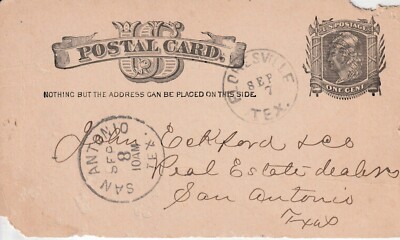 U.S. POSTAGE
POSTAL CARD.
ONE CENT
NOTHING BUT THE ADDRESS CAN BE PLACED ON THIS SIDE.
SEP
7
TEX.
SAN ANTONIO
SEP
8
10AM
TEX.
John Eckford & Co
Real Estate dealers
San Antonio
Texas